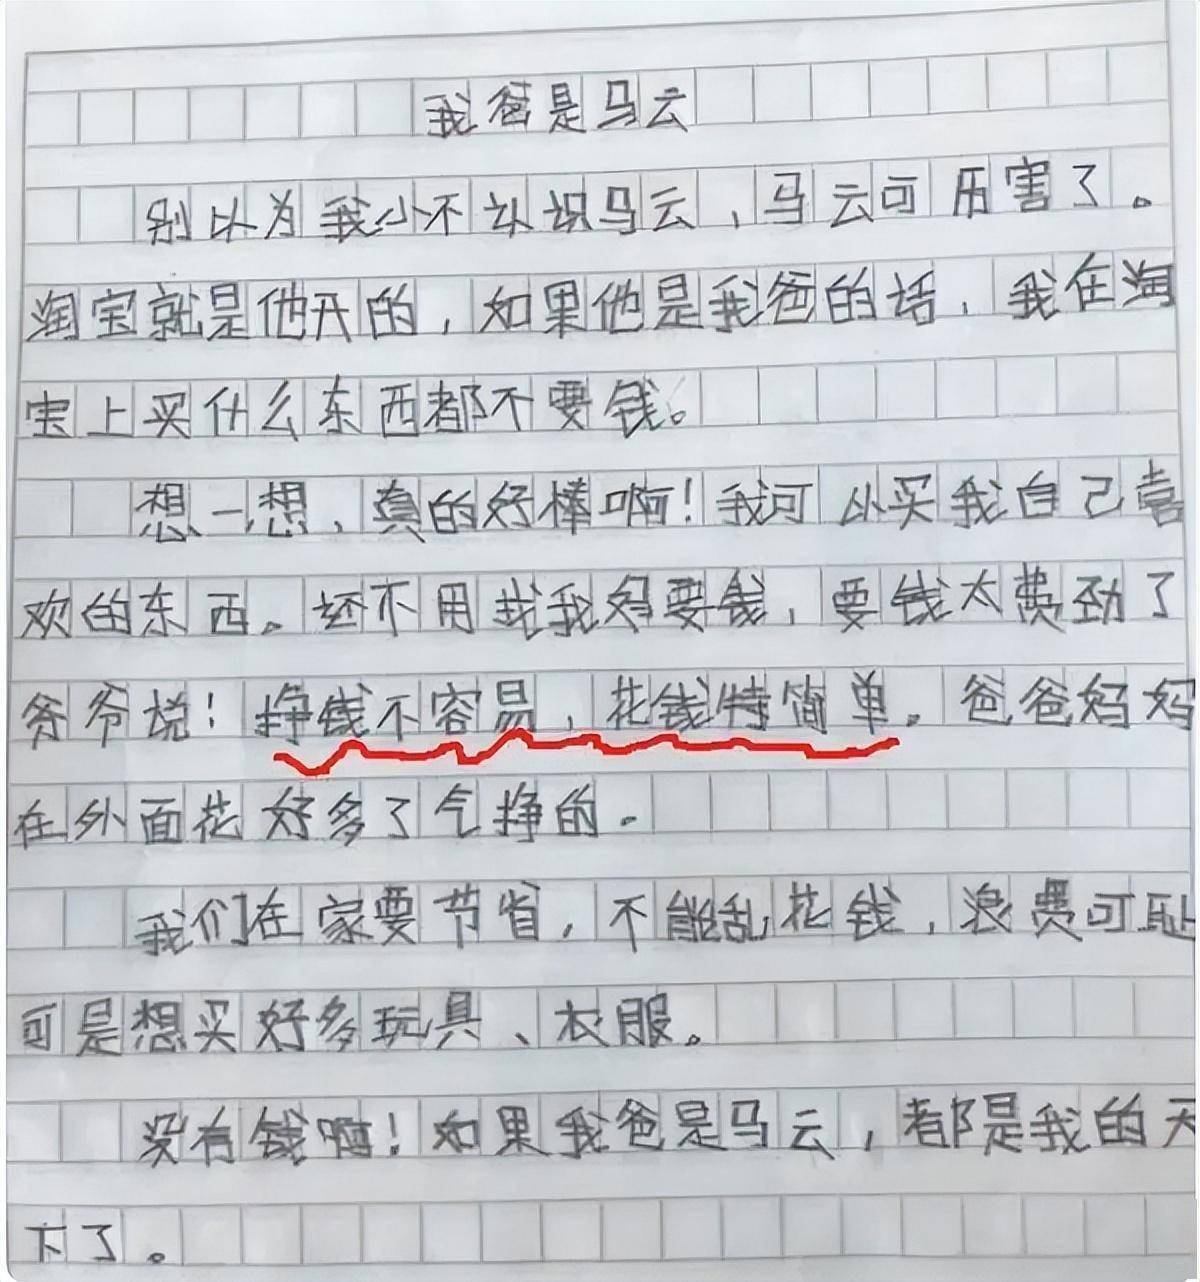 我爸是马云
别以为我小不认识马云，马云可历害了。
淘宝就是他开的，如果他是我爸的话，我在淘
宝上买什么东西都不要钱。
想一想，真的好棒啊！我可以买我自己喜
欢的东西。还不用找我妈要钱，要钱太费劲了
爷爷说！挣钱不容易，花钱特简单。爸爸妈妈
在外面花好多了气挣的。
我们在家要节省，不能乱花钱，浪费可耻
可是想买好多玩具、衣服。
没有钱啊！如果我爸是马云，都是我的天
下了。